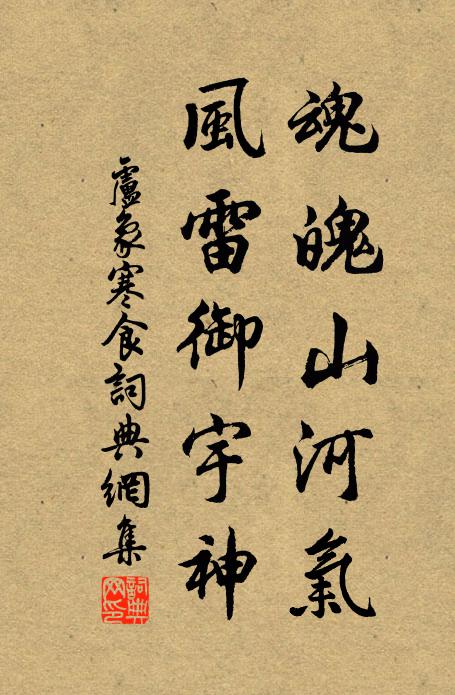 魂魄山河氣
風雷御宇神
盧象寒食詞典網集
詞典網印